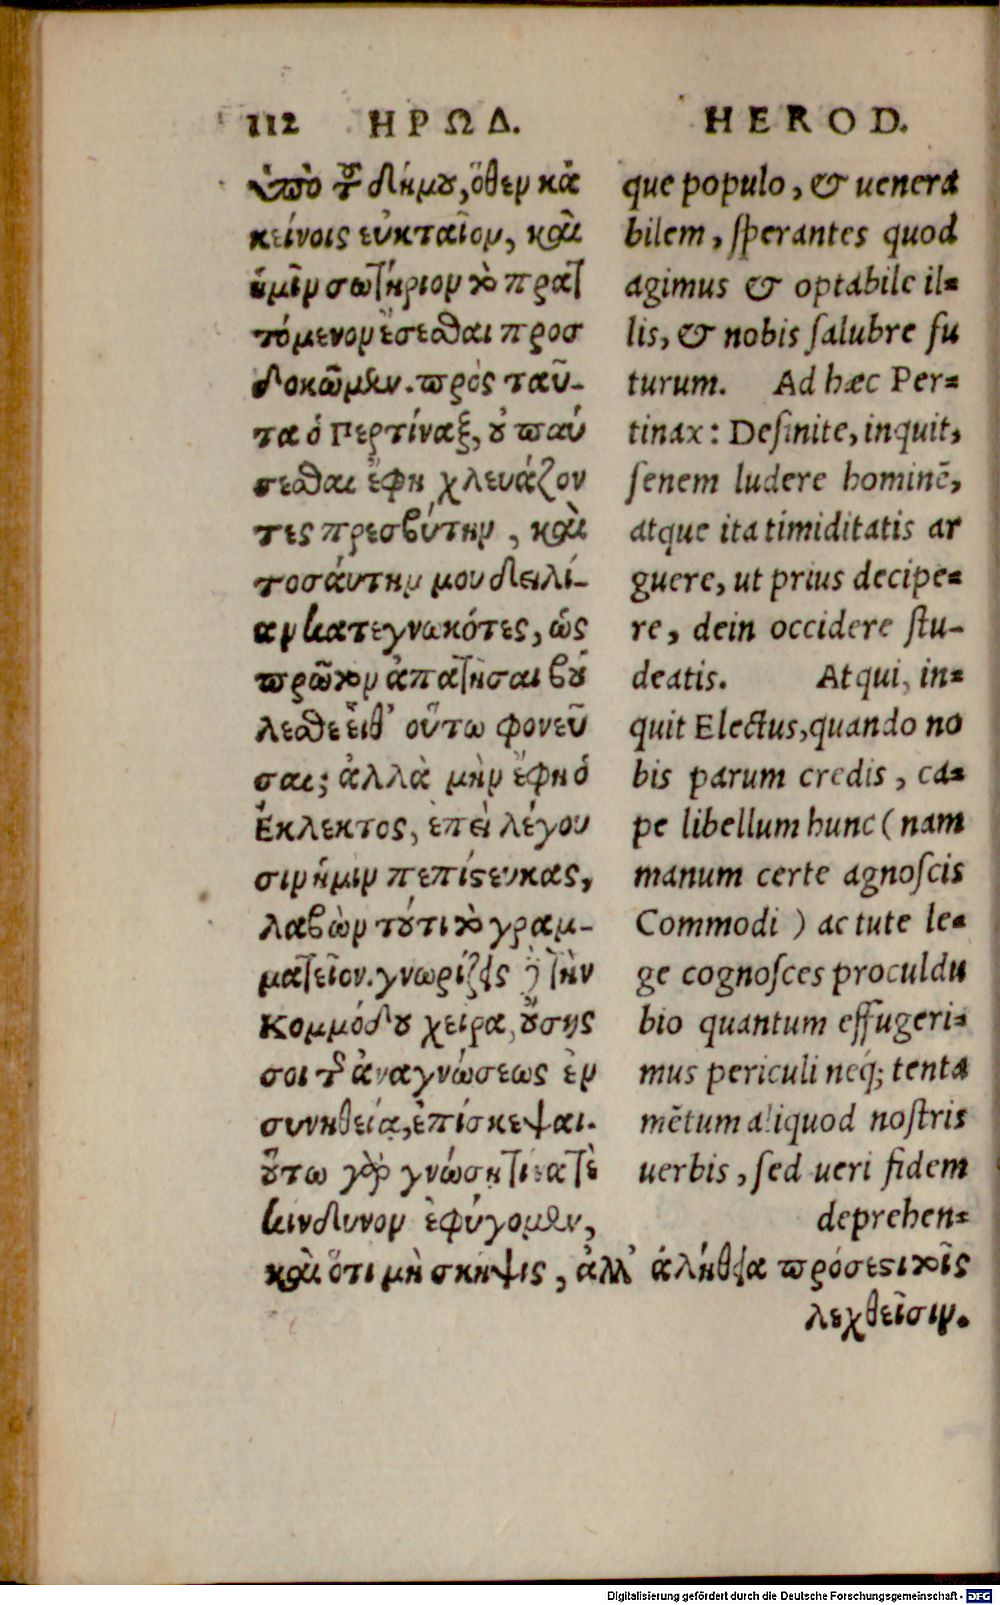 112 ΗΡΩΔ. HEROD.
ὑπὸ τοῦ δήμου, ὅθεν κἀ
κείνοις εὐκταῖον, καὶ
ἡμῖν σωτήριον τὸ πρατ
τόμενον ἔσεσθαι προσ
δοκῶμεν. πρὸς ταῦ-
τα ὁ Περτίναξ, οὐ παύ
σεσθαι ἔφη χλευάζον
τες πρεσβύτην, καὶ
τοσάυτην μου δειλί-
αν κατεγνωκότες, ὡς
πρῶτον ἀπατῆσαι βού
λεσθε εἶθ' οὕτω φονεῦ
σαι; ἀλλὰ μὴν ἔφη ὁ
Ἔκλεκτος, ἐπεὶ λέγου
σιν ἡμῖν πεπίστευκας,
λαβὼν τούτι τὸ γραμ-
ματεῖον. γνωρίζεις δὲ τὴν
Κομμόδου χεῖρα, οὔσης
σοι τῆς ἀναγνώσεως ἐν
συνηθείᾳ, ἐπίσκεψαι.
οὕτω γὰρ γνώσῃ τίνα τὲ
κινδυνον ἐφύγομεν,
καὶ ὅτι μὴ σκηψις, ἀλλ' ἀλήθεια πρόσεστι τοῖς
λεχθεῖσιν.
que populo, & uenera
bilem, sperantes quod
agimus & optabile il=
lis, & nobis salubre fu
turum. Ad hæc Per=
tinax: Desinite, inquit,
senem ludere hominē,
atque ita timiditatis ar
guere, ut prius decipe=
re, dein occidere stu-
deatis. Atqui, in=
quit Electus, quando no
bis parum credis, ca=
pe libellum hunc (nam
manum certe agnoscis
Commodi) ac tute le=
ge cognosces proculdu
bio quantum effugeri=
mus periculi neq; tenta
mētum aliquod nostris
uerbis, sed ueri fidem
deprehen=
Digitalisierung gefördert durch die Deutsche Forschungsgemeinschaft - DFG